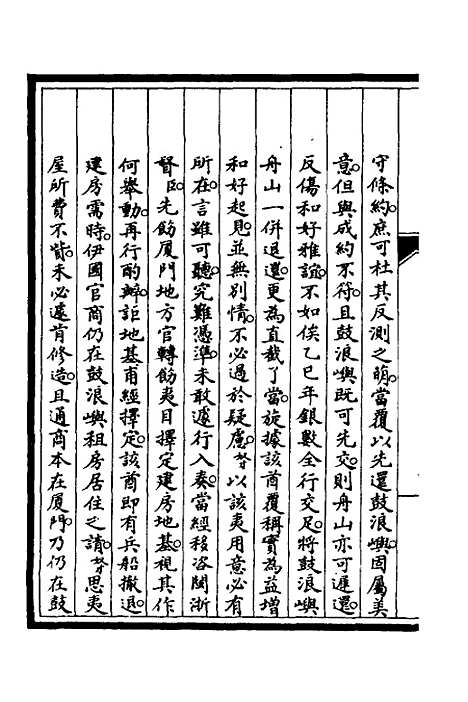 守條約。庶可杜其反測之萌。當覆以先還鼓浪嶼。固屬美
意。但與成約不符。且鼓浪嶼既可先交。則舟山亦可遲還。
反傷和好雅誼。不如俟乙巳年銀數全行交足。將鼓浪嶼
舟山一併退還。更為直截了當。旋據該酋覆稱。實為益增
和好起見。並無別情。不必過於疑慮。等以該夷用意必有
所在。言雖可聽。究難憑準。未敢遽行入奏。當經移咨閩浙
督臣。先飭厦門地方官轉飭夷目擇定建房地基。視其作
何舉動。再行酌辦。詎地基甫經擇定。該酋即有兵船撤退。
建房需時。伊國官商仍在鼓浪嶼租房居住之請。等思夷
屋所費不貲。未必遽肯修造。且通商本在厦門。乃仍在鼓